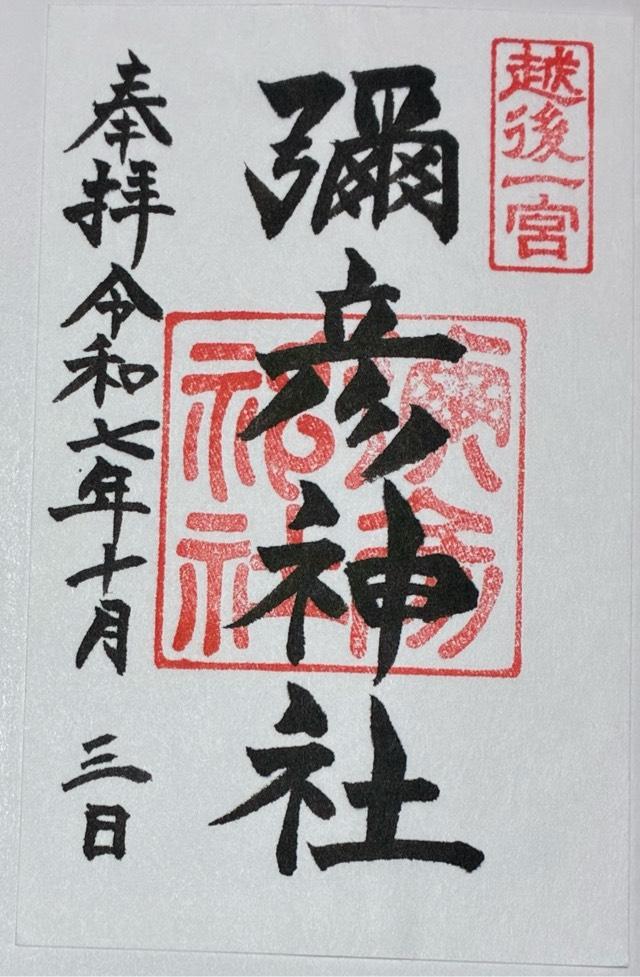 越後一宮
彌彦神社
奉拝令和七年十月三日